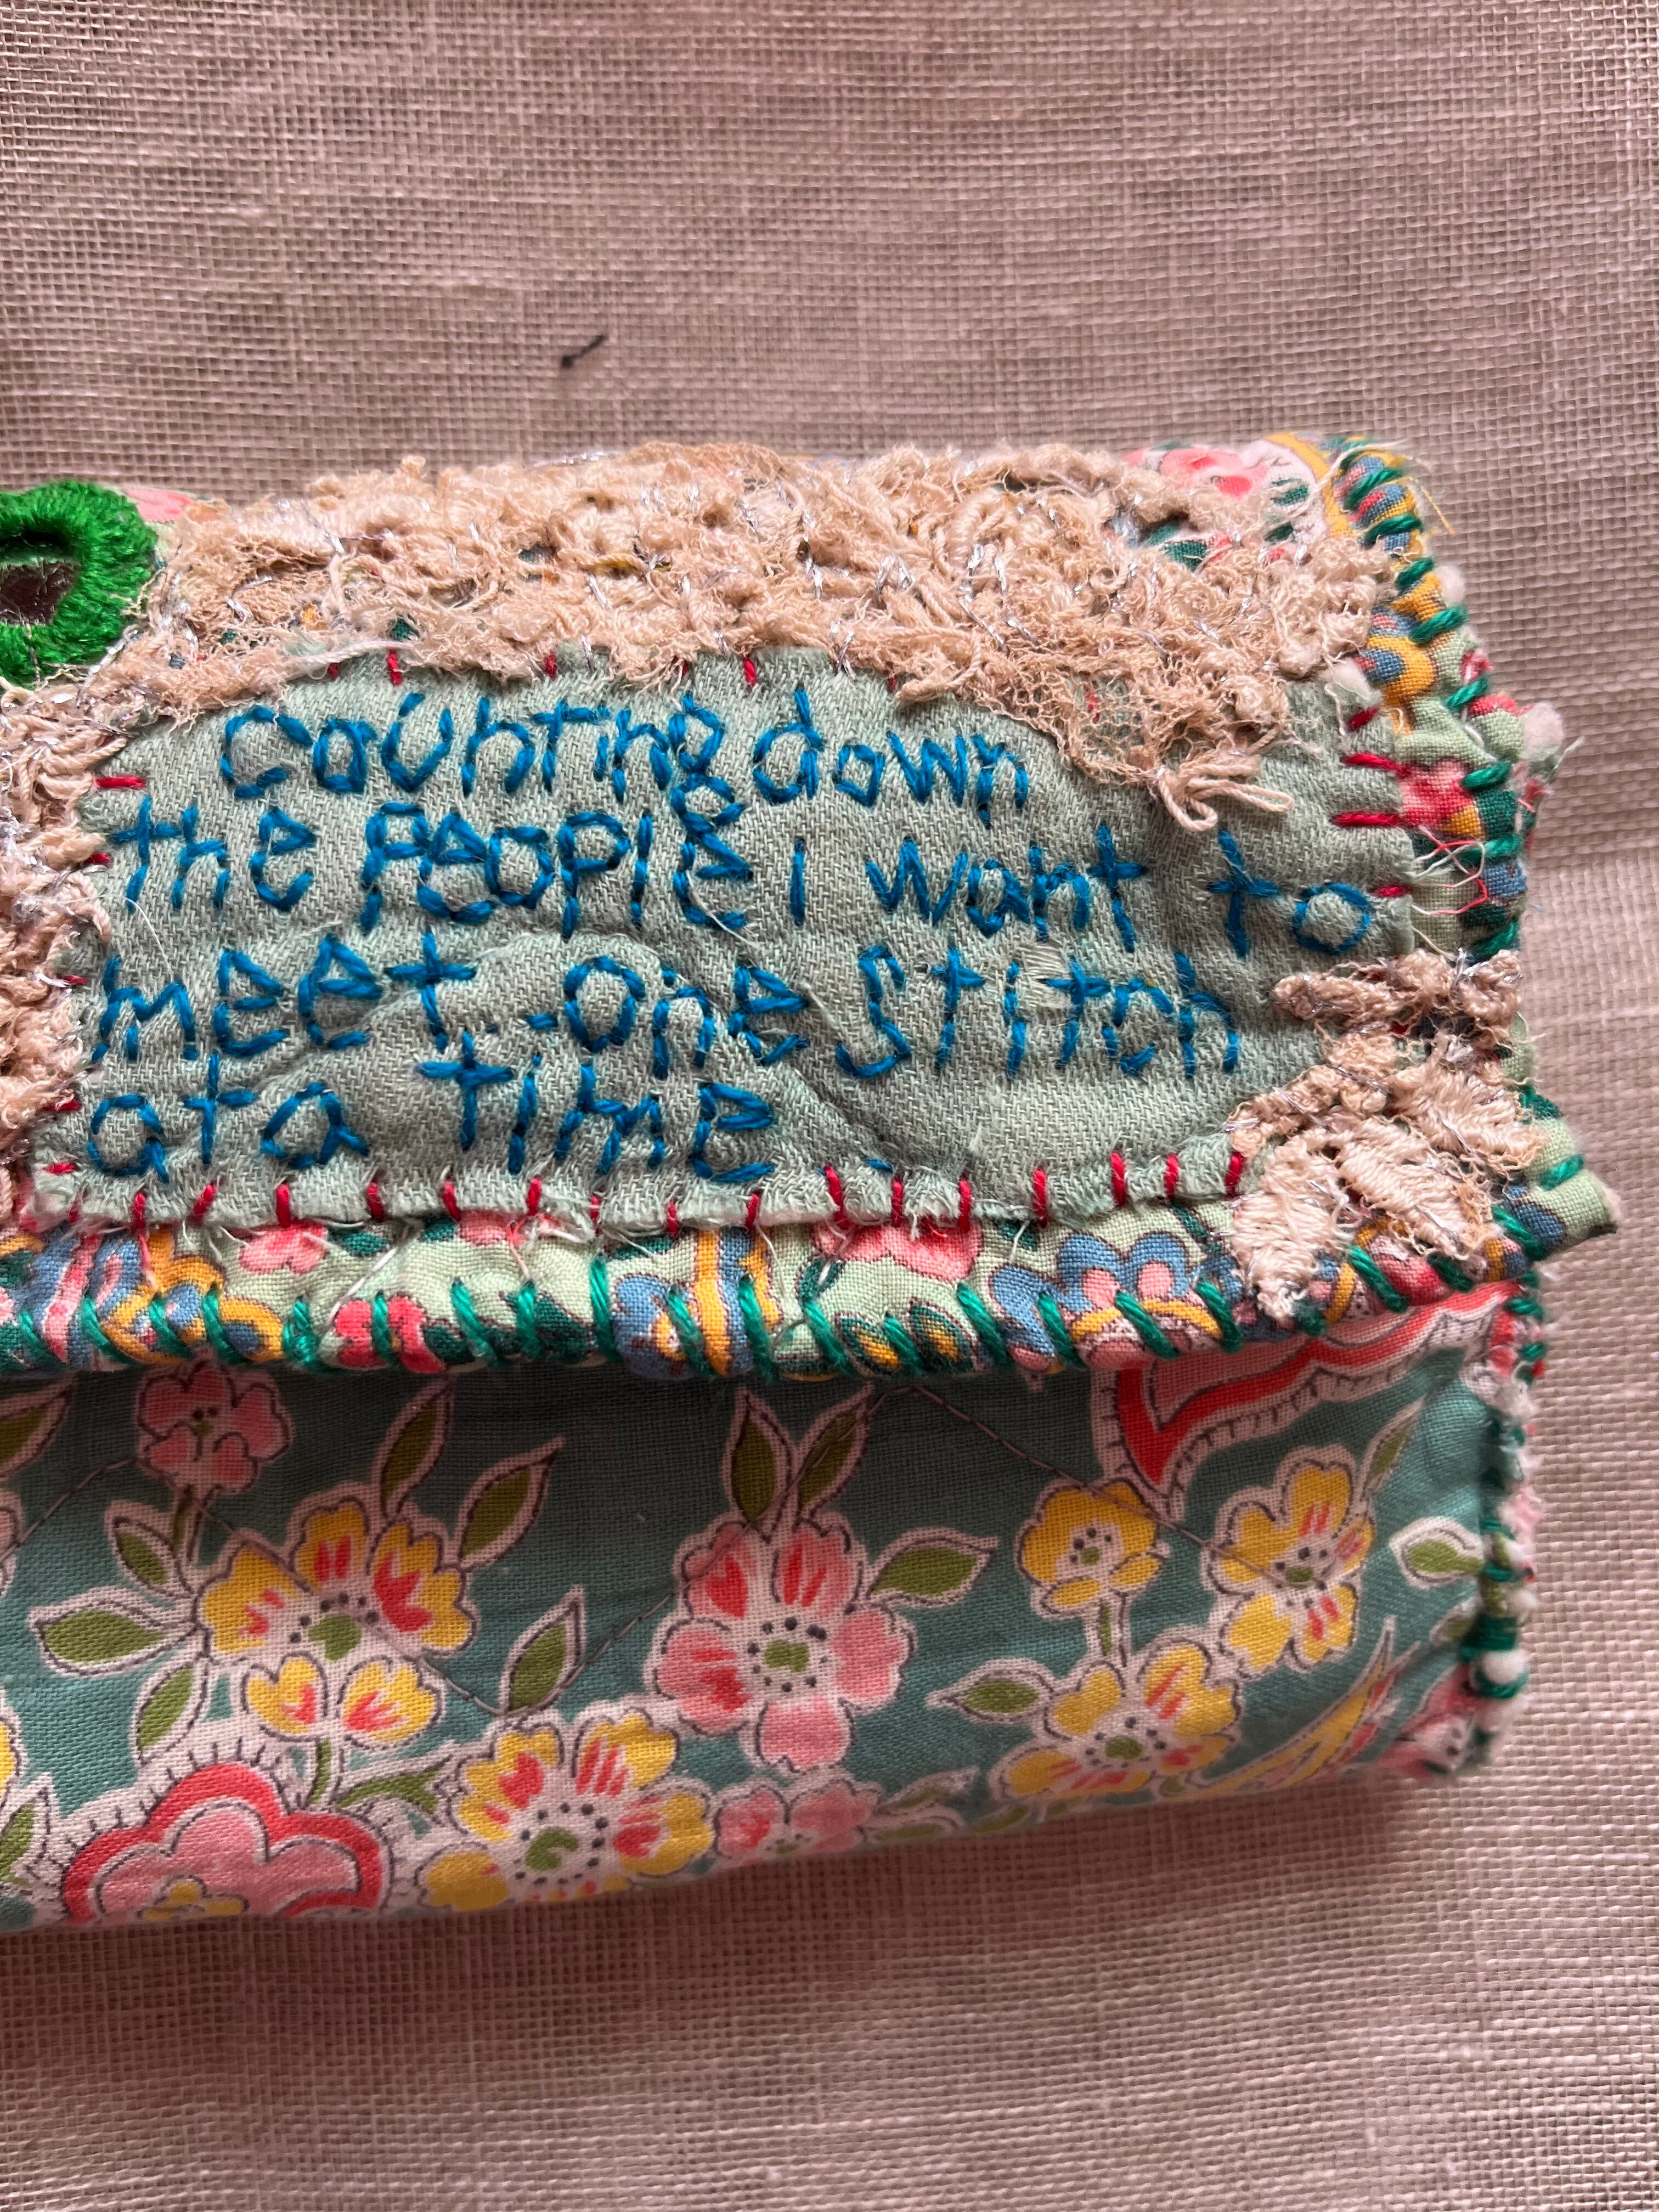 counting down
the PEOPlE I want to
mEEt one stitch
at a timE